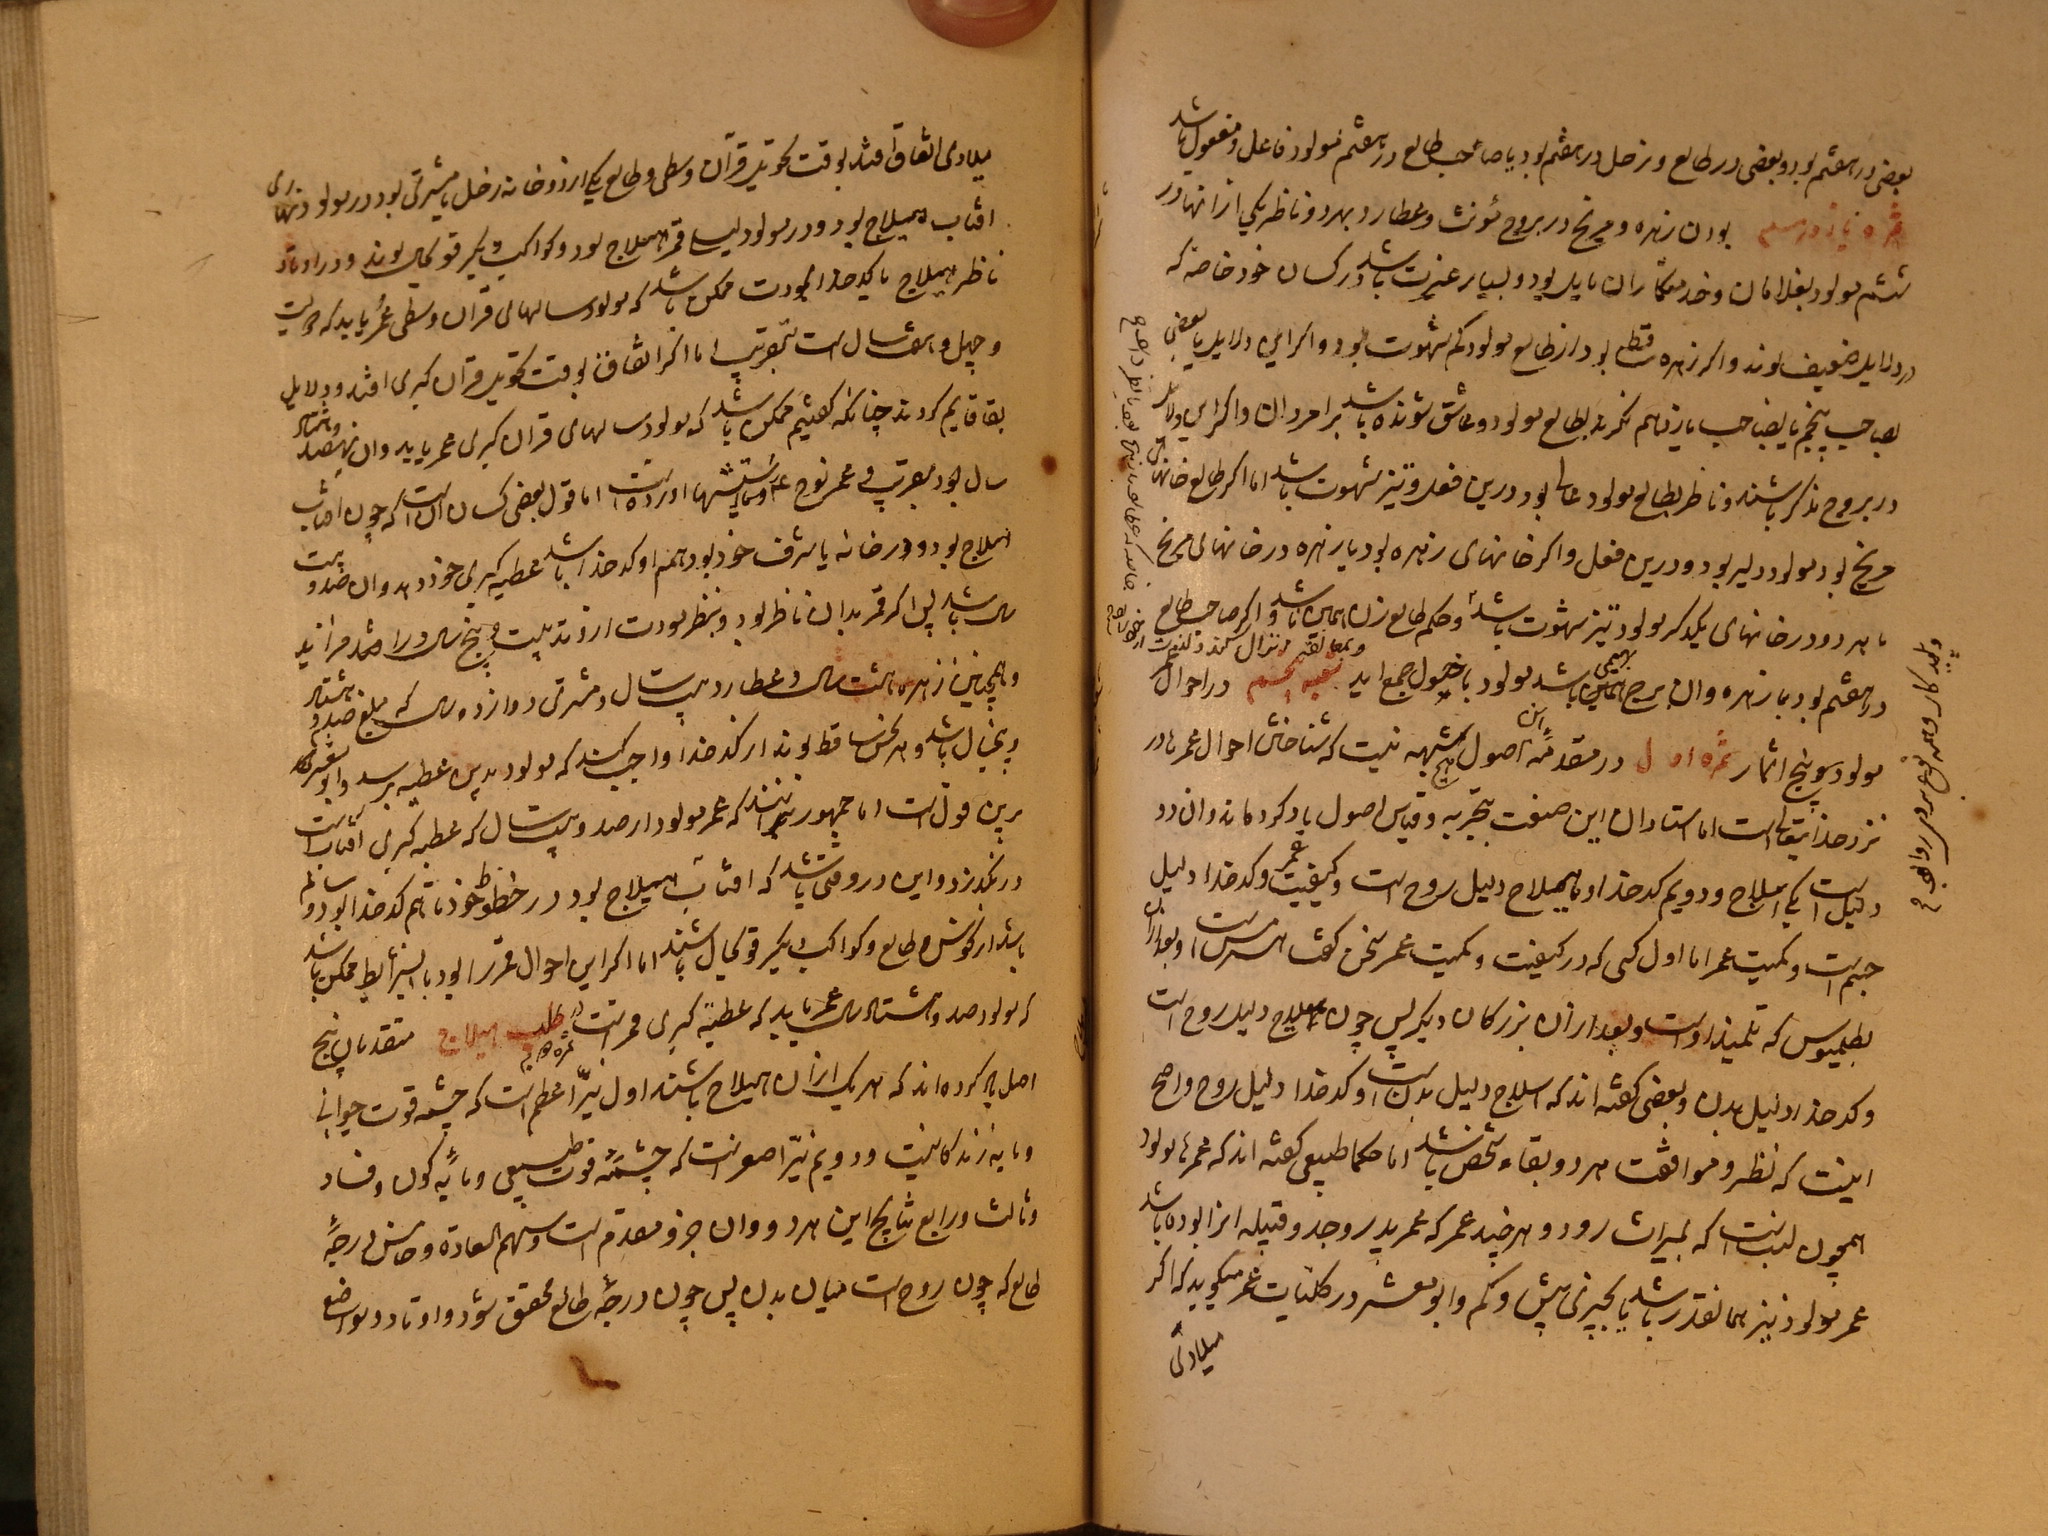 بعضی در هفتم بود و بعضی در طالع و زحل در هفتم بود یا صاحب طالع در هفتم مولود فاعل و مفعول باشد
بودن زهره و مریخ در بروج مونث و عطارد بهر دو ناظر یکی ازانها در
ششم مولود بغلامان و خدمتکاران مایل بود و بسیار عزیزت باشد در کسان خود خاصه که
در دلایل ضعیف بوند و اکر زهره ساقط بود از طالع مولود کم شهوت بود و اکر این دلایل با بعضی
بصاحب پنجم یا بصاحب یازدهم نکرند بطالع مولود عاشق شونده باشد بر امردان و اکر این دلایل
در بروج مذکر باشند و ناظر بطالع مولود غالب بود درین فعل و تیز شهوت باشد اما اکر طالع خانهای
مریخ بود مولود دلیر بود درین فعل و اکر خانهای زهره بود یا زهره در خانهای مریخ
یا هر دو در خانهای یکدکر مولود تیز شهوت باشد و حکم طالع زن همین باشد و اکر صاحب طالع
در هفتم بود با زهره وان برج بهیمی باشد مولود با جمع اید شعبه پنجم در احوال عمر
مولود و پنج اثمار ثمره اول در مقدمه این اصول هیچ شبهه نیست که شناختن احوال عمرها در
نزد خدایتعالی است اما استادان این صنعت بتجربه و قیاس اصول یاد کرده اند وان دو
دلیل است یکی هیلاج و دویم کدخدا اما هیلاج دلیل روح است و کیفیت عمر و کدخدا دلیل
جسم است و کمیت عمر اما اول کسی که در کیفیت و کمیت عمر سخن کفت هرمس است و بعد ازان
بطلمیوس که تلمیذ اوست و بعد ازان بزرکان دیکر پس چون هیلاج دلیل روح است
و کدخدا دلیل بدن و بعضی کفته اند که هیلاج دلیل بدن است و کدخدا دلیل روح و اصح
اینست که نظر و موافقت هر دو بقاء شخص باشد اما حکما طبیعی کفته اند که عمرها مولود
همچون نسبت است که بمیراث رود و هر چند عمر که عمر پدر و جد و قبیله انرا بوده باشد
عمر مولود نیز همانقدر باشد یا بچیزی بیش و کم و ابو معشر در کلیات عمر میکوید که اکر
میلادی
میلادی اتفاق افتد بوقت تحویل قران وسطی و طالع یکی از دو خانه زحل یا مشتری بود در مولود نهاری
افتاب هیلاج بود و در مولود لیلی قمر هیلاج بود و کواکب دیکر قوی حال بوند و در اوتاد
ناظر هیلاج یا کدخدا بمودت ممکن باشد که مولود سالهای قران وسطی عمر یابد که دویست
و چهل و هشت سال است بتقریب اما اکر اتفاق بوقت تحویل قران کبری افتد و دلایل
بقا قایم کردند چنانکه کفتیم ممکن باشد که مولود سالهای قران کبری عمر یابد وان نهصد
سال بود بتقریب و عمر نوح اورده است اما قول بعضی کسان انست که چون افتاب
هیلاج بود و در خانه یا شرف خود بود هم او کدخدا باشد عطیه کبری خود دهد وان صد و بیست
سال باشد پس اکر قمر بدان ناظر بود و بنظر مودت او نیز بیست و پنج سال دران فزاید
و همچنین زهره هشت سال و عطارد بیست سال و مشتری دوازده سال که مبلغ صد و هشتاد
و پنجسال باشد و هر نحس ساقط بوند از کدخدا واجب کند که مولود بدین عطیه برسد و ابو معشر
برین قولست اما جمهور برانند که عمر مولود از صد و بیست سال که عطیه کبری افتابست
در نکذرد و این در وقتی باشد که افتاب هیلاج بود در حظوظ خود تا هم کدخدا بود و سالم
باشد از نحوس و طالع و کواکب دیکر قوی حال باشند اما اکر این احوال قمر را بود باین شرایط ممکن باشد
که مولود صد و هشت سال عمر یابد که عطیه کبری قمر است ثمره دویم در طلب هیلاج متقدمان پنج
اصل یاد کرده اند که هر یک ازان هیلاج باشند اول نیر اعظم است که چشمه قوت حیوانی
و مایه زندکانیست و دویم نیر اصغر است که چشمه قوت طبیعی و مایه کون و فساد
و ثالث و رابع نتایج این هر دو وان جزو مقدم است و سهم السعاده و خامس درجه
طالع که چون روح است میان بدن پس چون درجه طالع محقق شود و اوتاد و مواضع